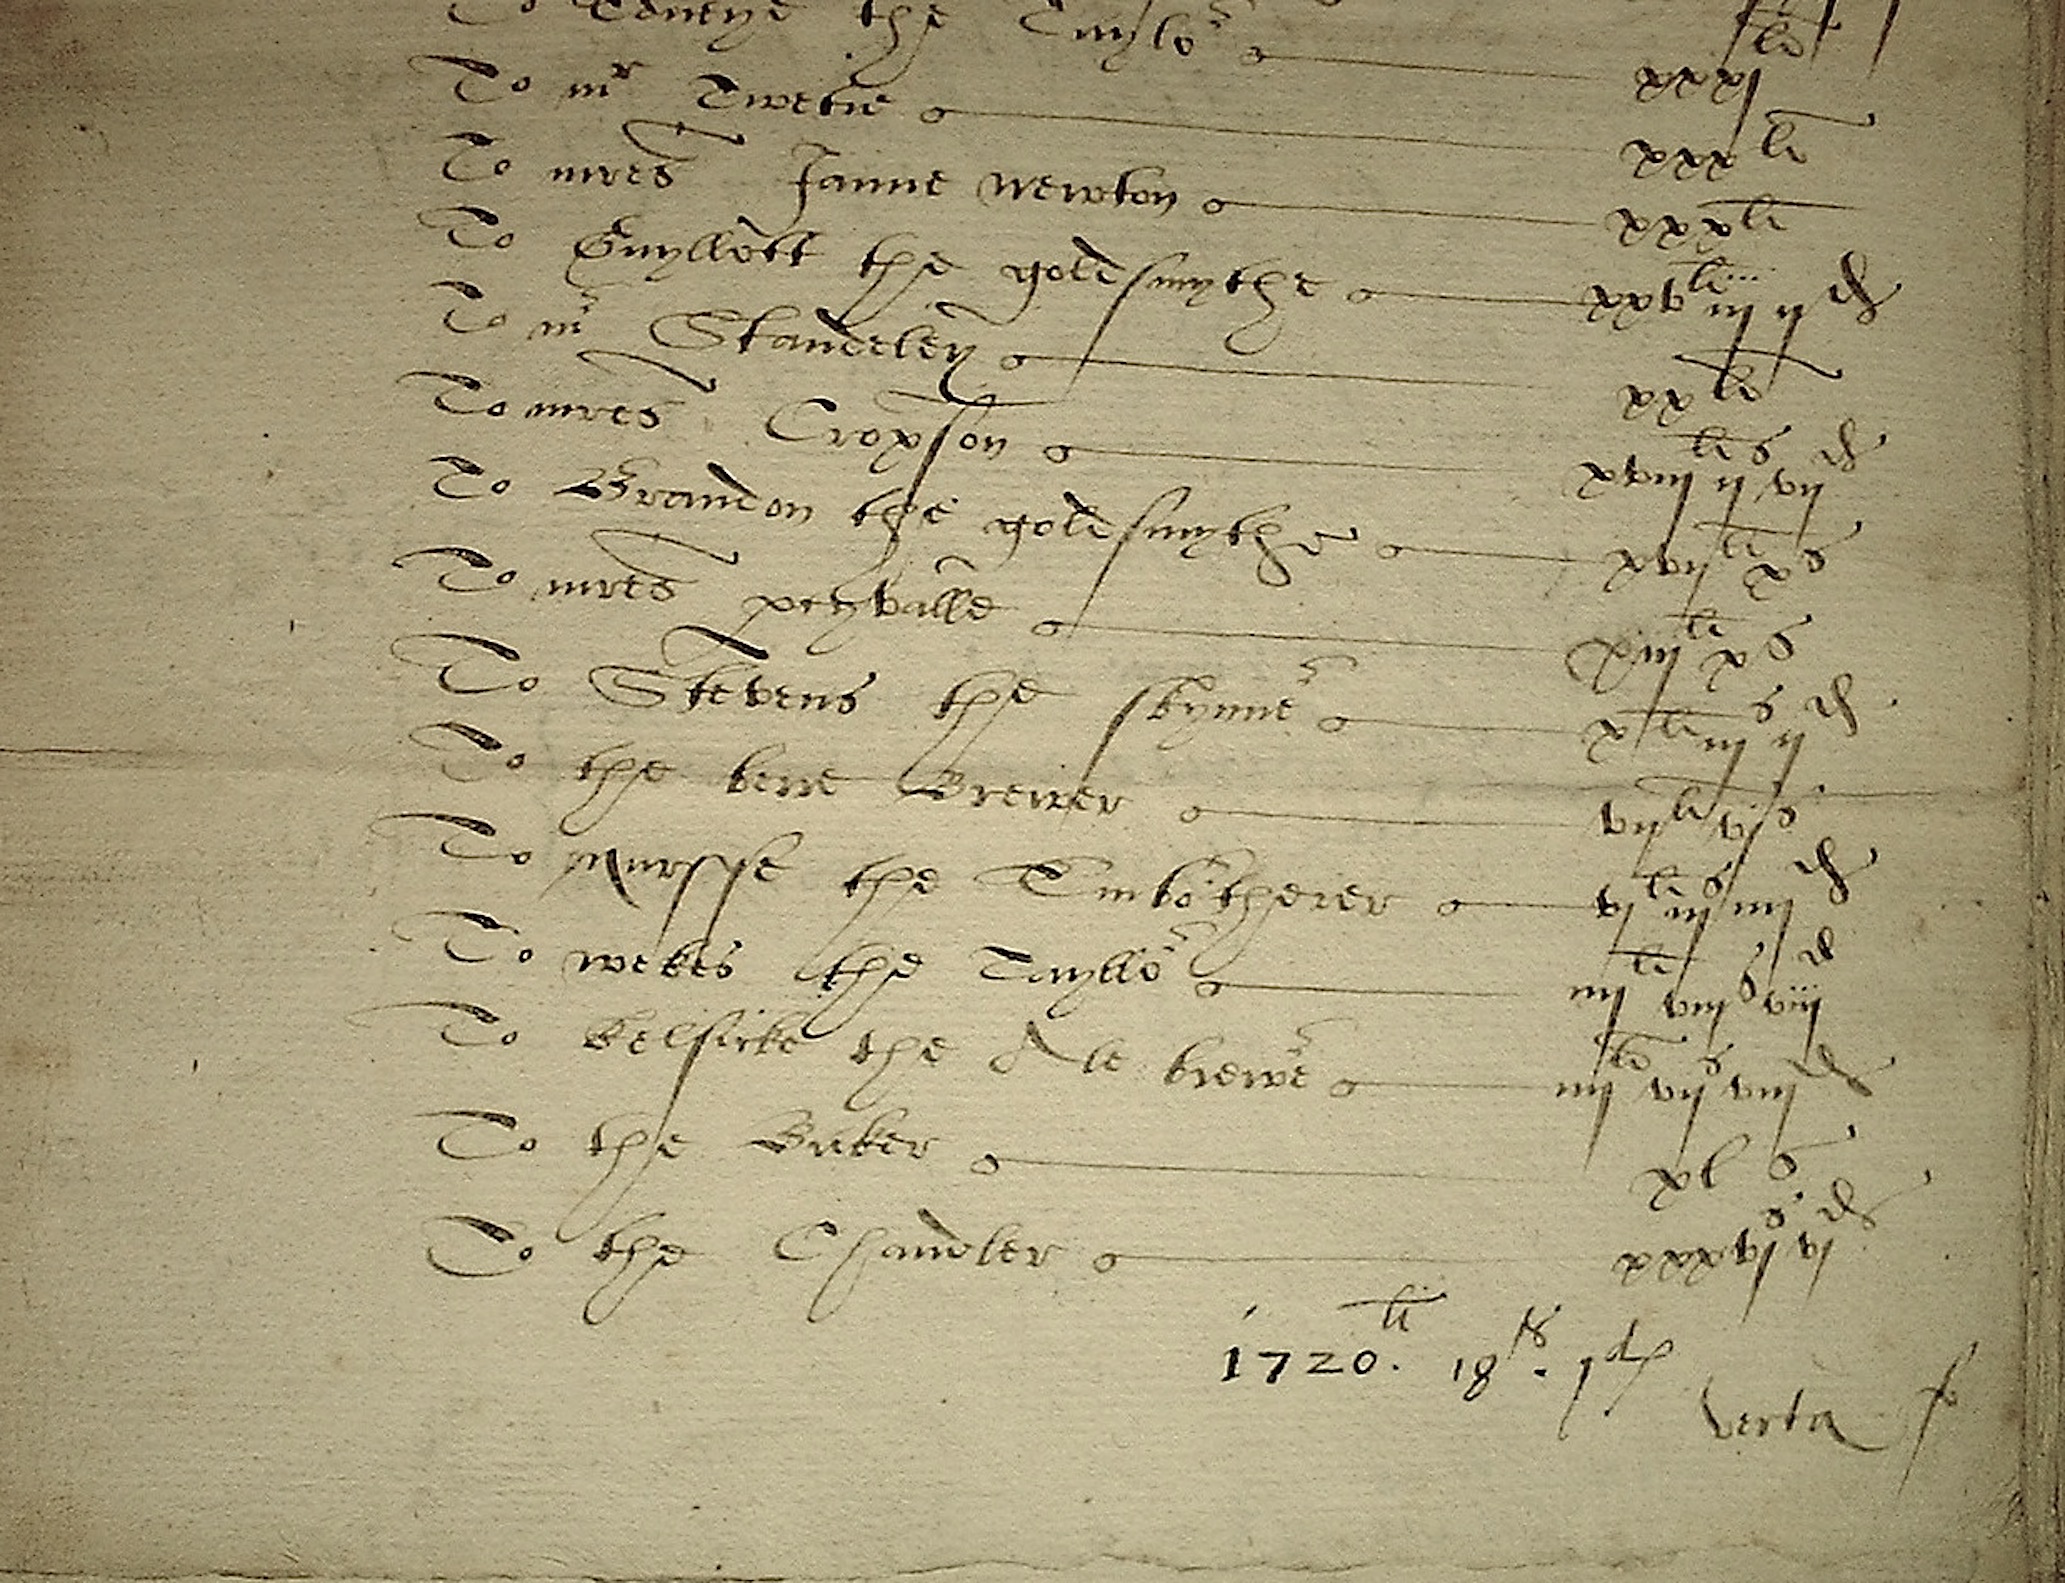 the Taylor xxxj li
To mr Twetie xxx li
To mres Janne Newton xxx li
To Guyllott the goldsmythe xxv li iij ij d
To mr Standeley xx li
To mres Croxson xviij li ij s vij d
To Brandon the goldsmythe xvij li x s
To mres peyvalle xiij li x s
To Stevens the skynner x li iij s ij d
To the bere Brewer vij li vj s
To Nursse the Imbotherer vj li iij s iiij d
To wekes the Tayllor iiij li viij s viij d
To kelsicke the Ale brewer iiij li vij s viij d
To the Baker xl s
To the Chandler xxxvj s vj d
1720. li 18 s. 1 d
verta